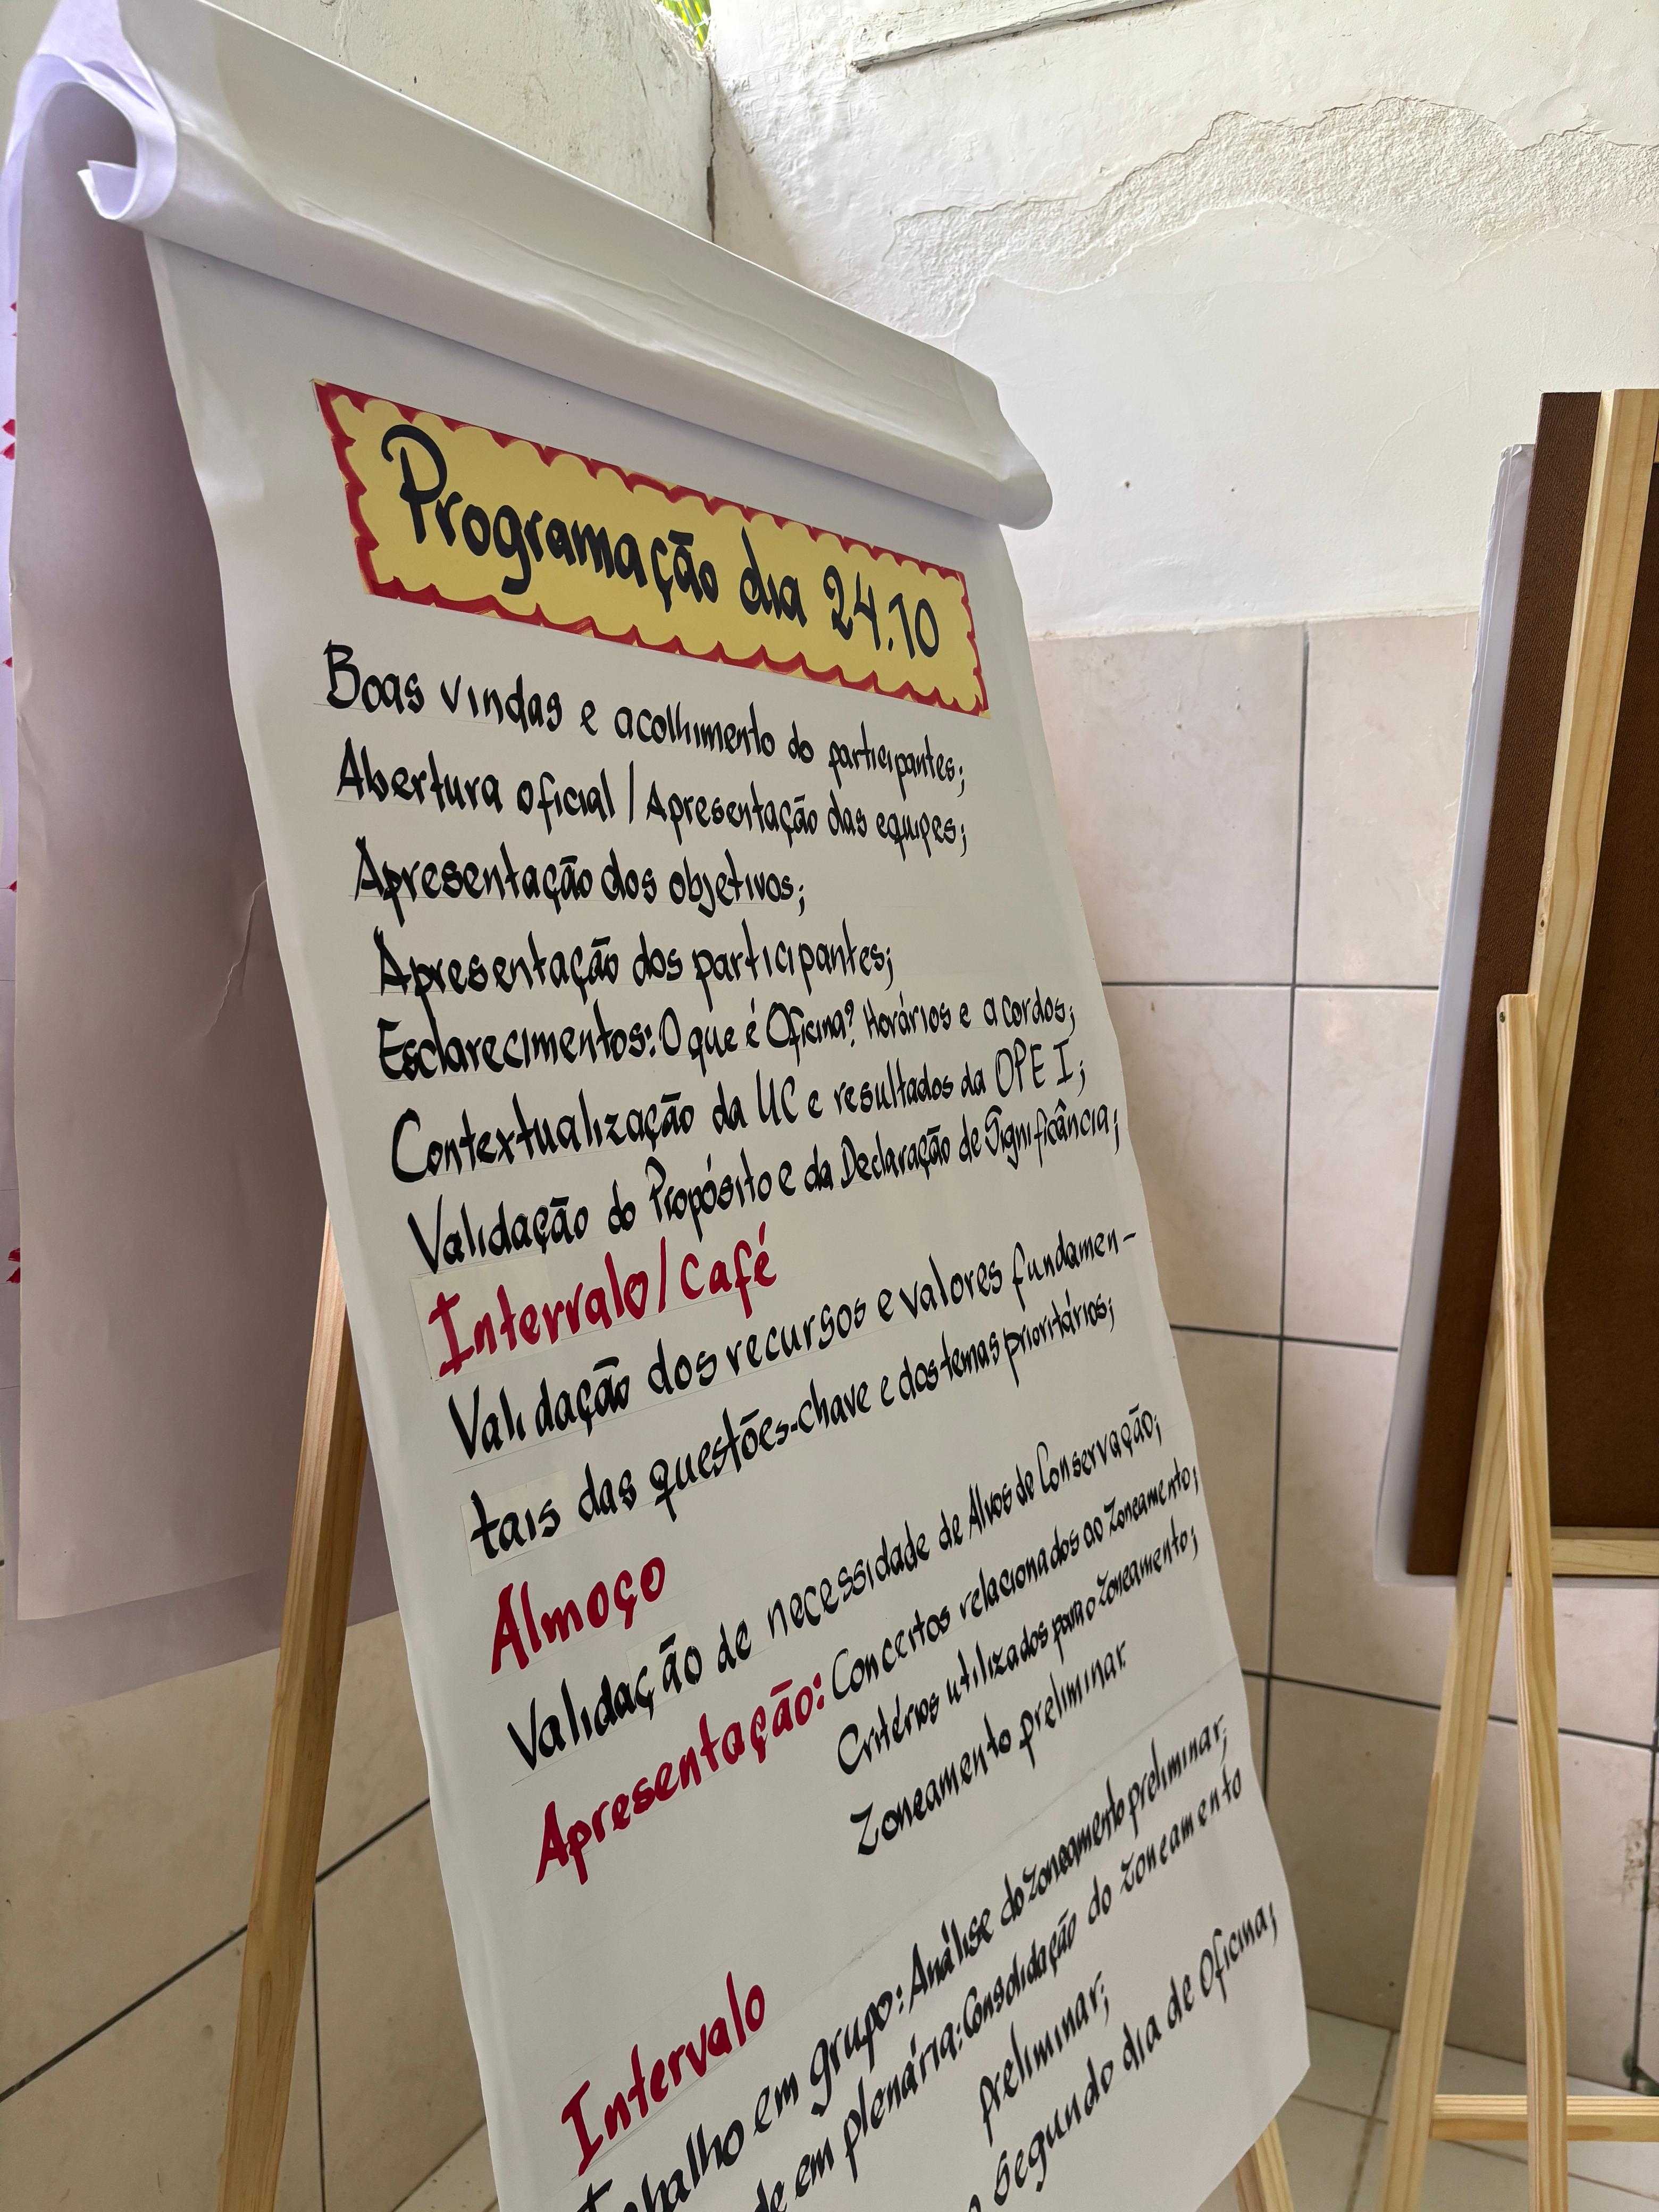 Programação dia 24.10
Boas vindas e acolhimento do participantes;
Abertura oficial / Apresentação das equipes;
Apresentação dos objetivos;
Apresentação dos participantes;
Esclarecimentos: O que é Oficina? Horários e acordos;
Contextualização da UC e resultados da OPE I;
Validação do Propósito e da Declaração de Significância;
Intervalo/Café
Validação dos recursos e valores fundamen-
tais das questões-chave e dos temas prioritários;
Almoço
Validação de necessidade de Alvos de Conservação;
Apresentação: Conceitos relacionados ao Zoneamento;
Critérios utilizados para o Zoneamento;
Zoneamento preliminar.
Intervalo
Trabalho em grupo: Análise do zoneamento preliminar;
de em plenária: Consolidação do zoneamento
preliminar;
segundo dia de Oficina;